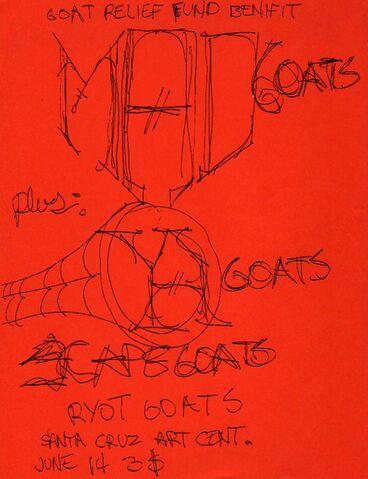 GOAT RELIEF FUND BENIFIT
MAD GOATS
plus:
GOATS
SCAPEGOATS
RYOT GOATS
SANTA CRUZ ART CENT.
JUNE 14 3$